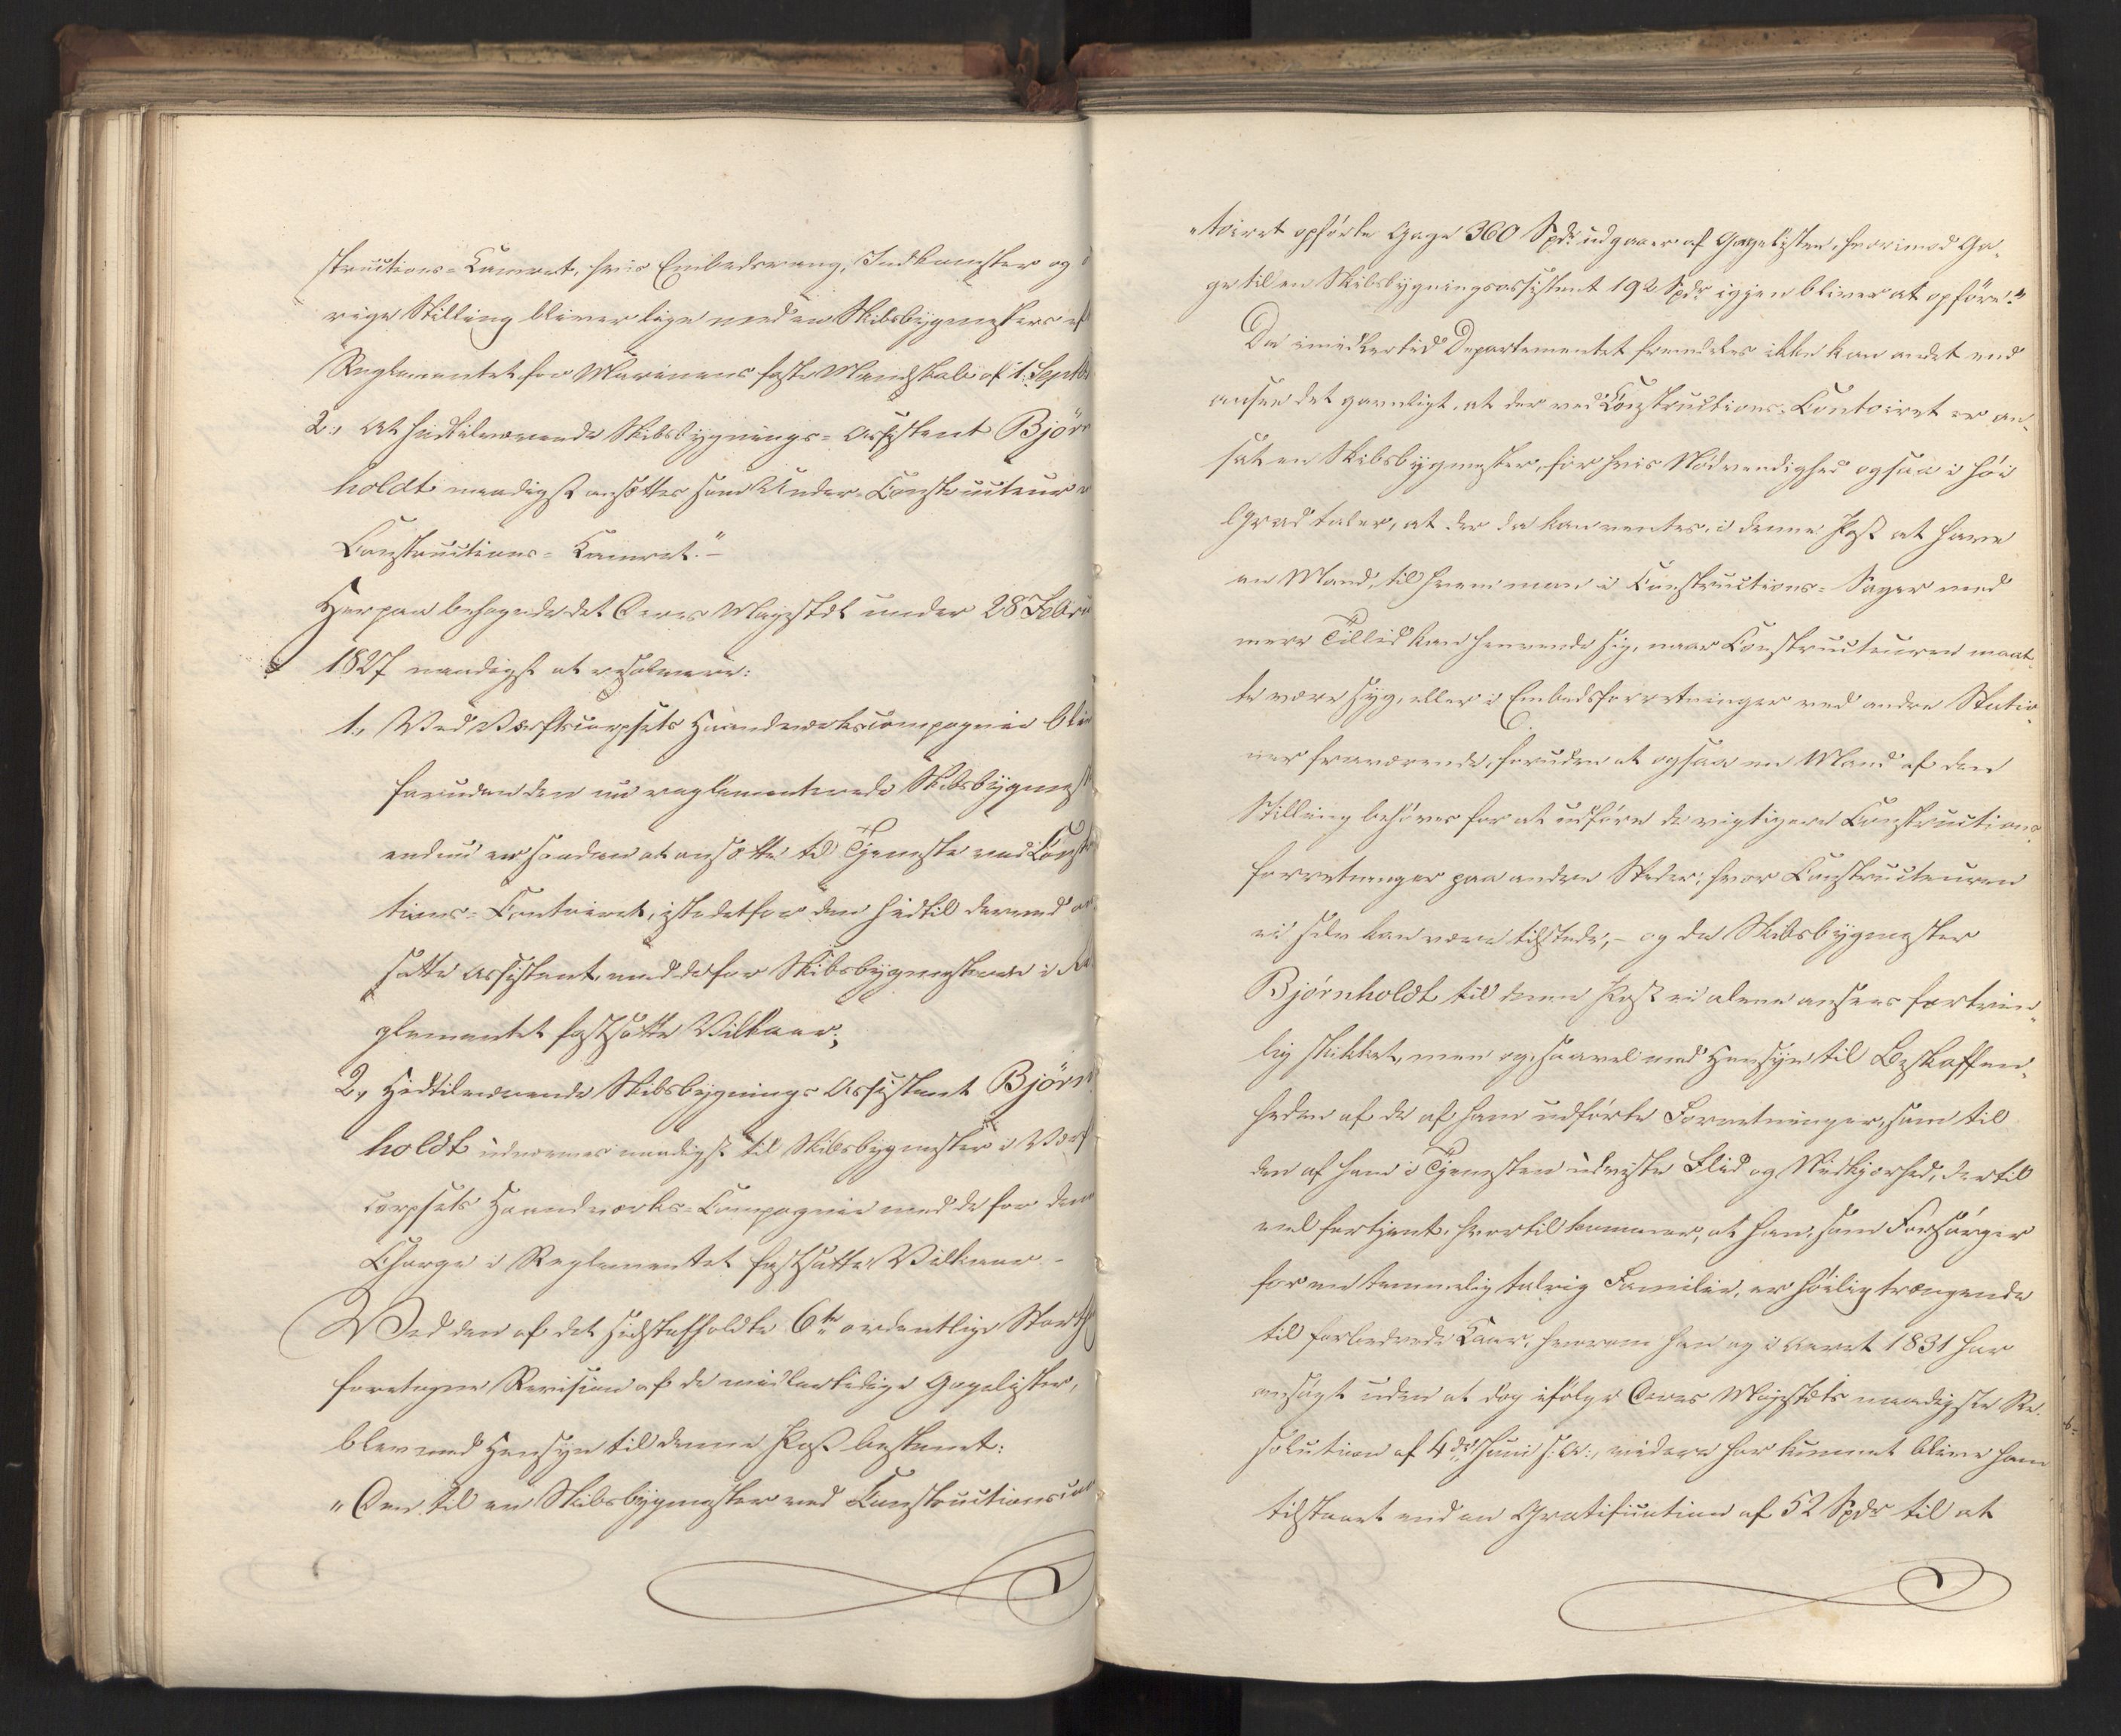 structions-Kamret, hvis Embedsrang, Indkomster og ö
rige Stilling bliver lige med en Skibsbygmesters ef
Reglementet for Marinens faste Mandskab af 1. Septbr
2., At hidtilværende Skibsbygnings-Assistent Björn
holdt naadigst ansættes som Under-Constructeur v
Constructions-Kamret."-
Herpaa behagede det Deres Majestæt under 28 Febru
1827 naadigst at resolvere:
1., Ved Værftscorpsets Haandværkscompagnie bli
foruden den nu reglementerede Skibsbygmest
endnu en saadan at ansætte til Tjeneste ved Const
tions-Contoiret, istedetfor den hidtil derved an
satte Assistent, med de for Skibsbygmesterne i Re
glementet fastsatte Vilkaar;
2., Hidtilværende Skibsbygnings Assistent Björn
holdt udnævnes naadigst til Skibsbygmester i Værf
corpsets Haandværks-Compagnie med de for den
Charge i Reglementet fastsatte Vilkaar.-
Ved den af det sidstafholdte 6te ordentlige Storth
foretagne Revision af de midlertidige Gagelister,
blev med Hensyn til denne Post bestemt:
"Den til en Skibsbygmester ved Constructionscon
"toiret opförte Gage 360 Spdr udgaaer af Gagelisten, hvorimod Ga-
ge til en Skibsbygningsassistent 192 Spdr igjen bliver at opföre."
Da imidlertid Departementet fremdeles ikke kan andet end
ansee det gavnligt, at der ved Constructions-Contoiret er an-
sat en Skibsbygmester, for hvis Nödvendighed ogsaa i höi
Grad taler, at der da kan ventes, i denne Post at have
en Mand, til hvem man i Constructions-Sager med
mere Tillid kan henvende sig, naar Constructeuren maat-
te være syg, eller i Embedsforretninger ved andre Statio-
ner fraværende, foruden at ogsaa en Mand af den
Stilling behöves for at udföre de vigtigere Constructions-
forretninger paa andre Steder, hvor Constructeuren
ei selv kan være tilstede, - og da Skibsbygmester
Björnholdt til denne Post ei alene ansees fortrin-
lig skikket, men og, saavel med Hensyn til Beskaffen-
heden af de af ham udförte Forretninger, som til
den af ham i Tjenesten udviste Flid og Nidkjærhed, dertil
vel fortjent, hvortil kommer, at han, som Forsörger
for en temmelig talrig Familie, er höilig trængende
til forbedrede Kaar, hvorom han og i Aaret 1831 har
ansögt uden at dog ifölge Deres Majestæts naadigste Re-
solution af 4de Juni s. A., videre har kunnet blive ham
tilstaaet end en Gratification af 52 Spdr til at